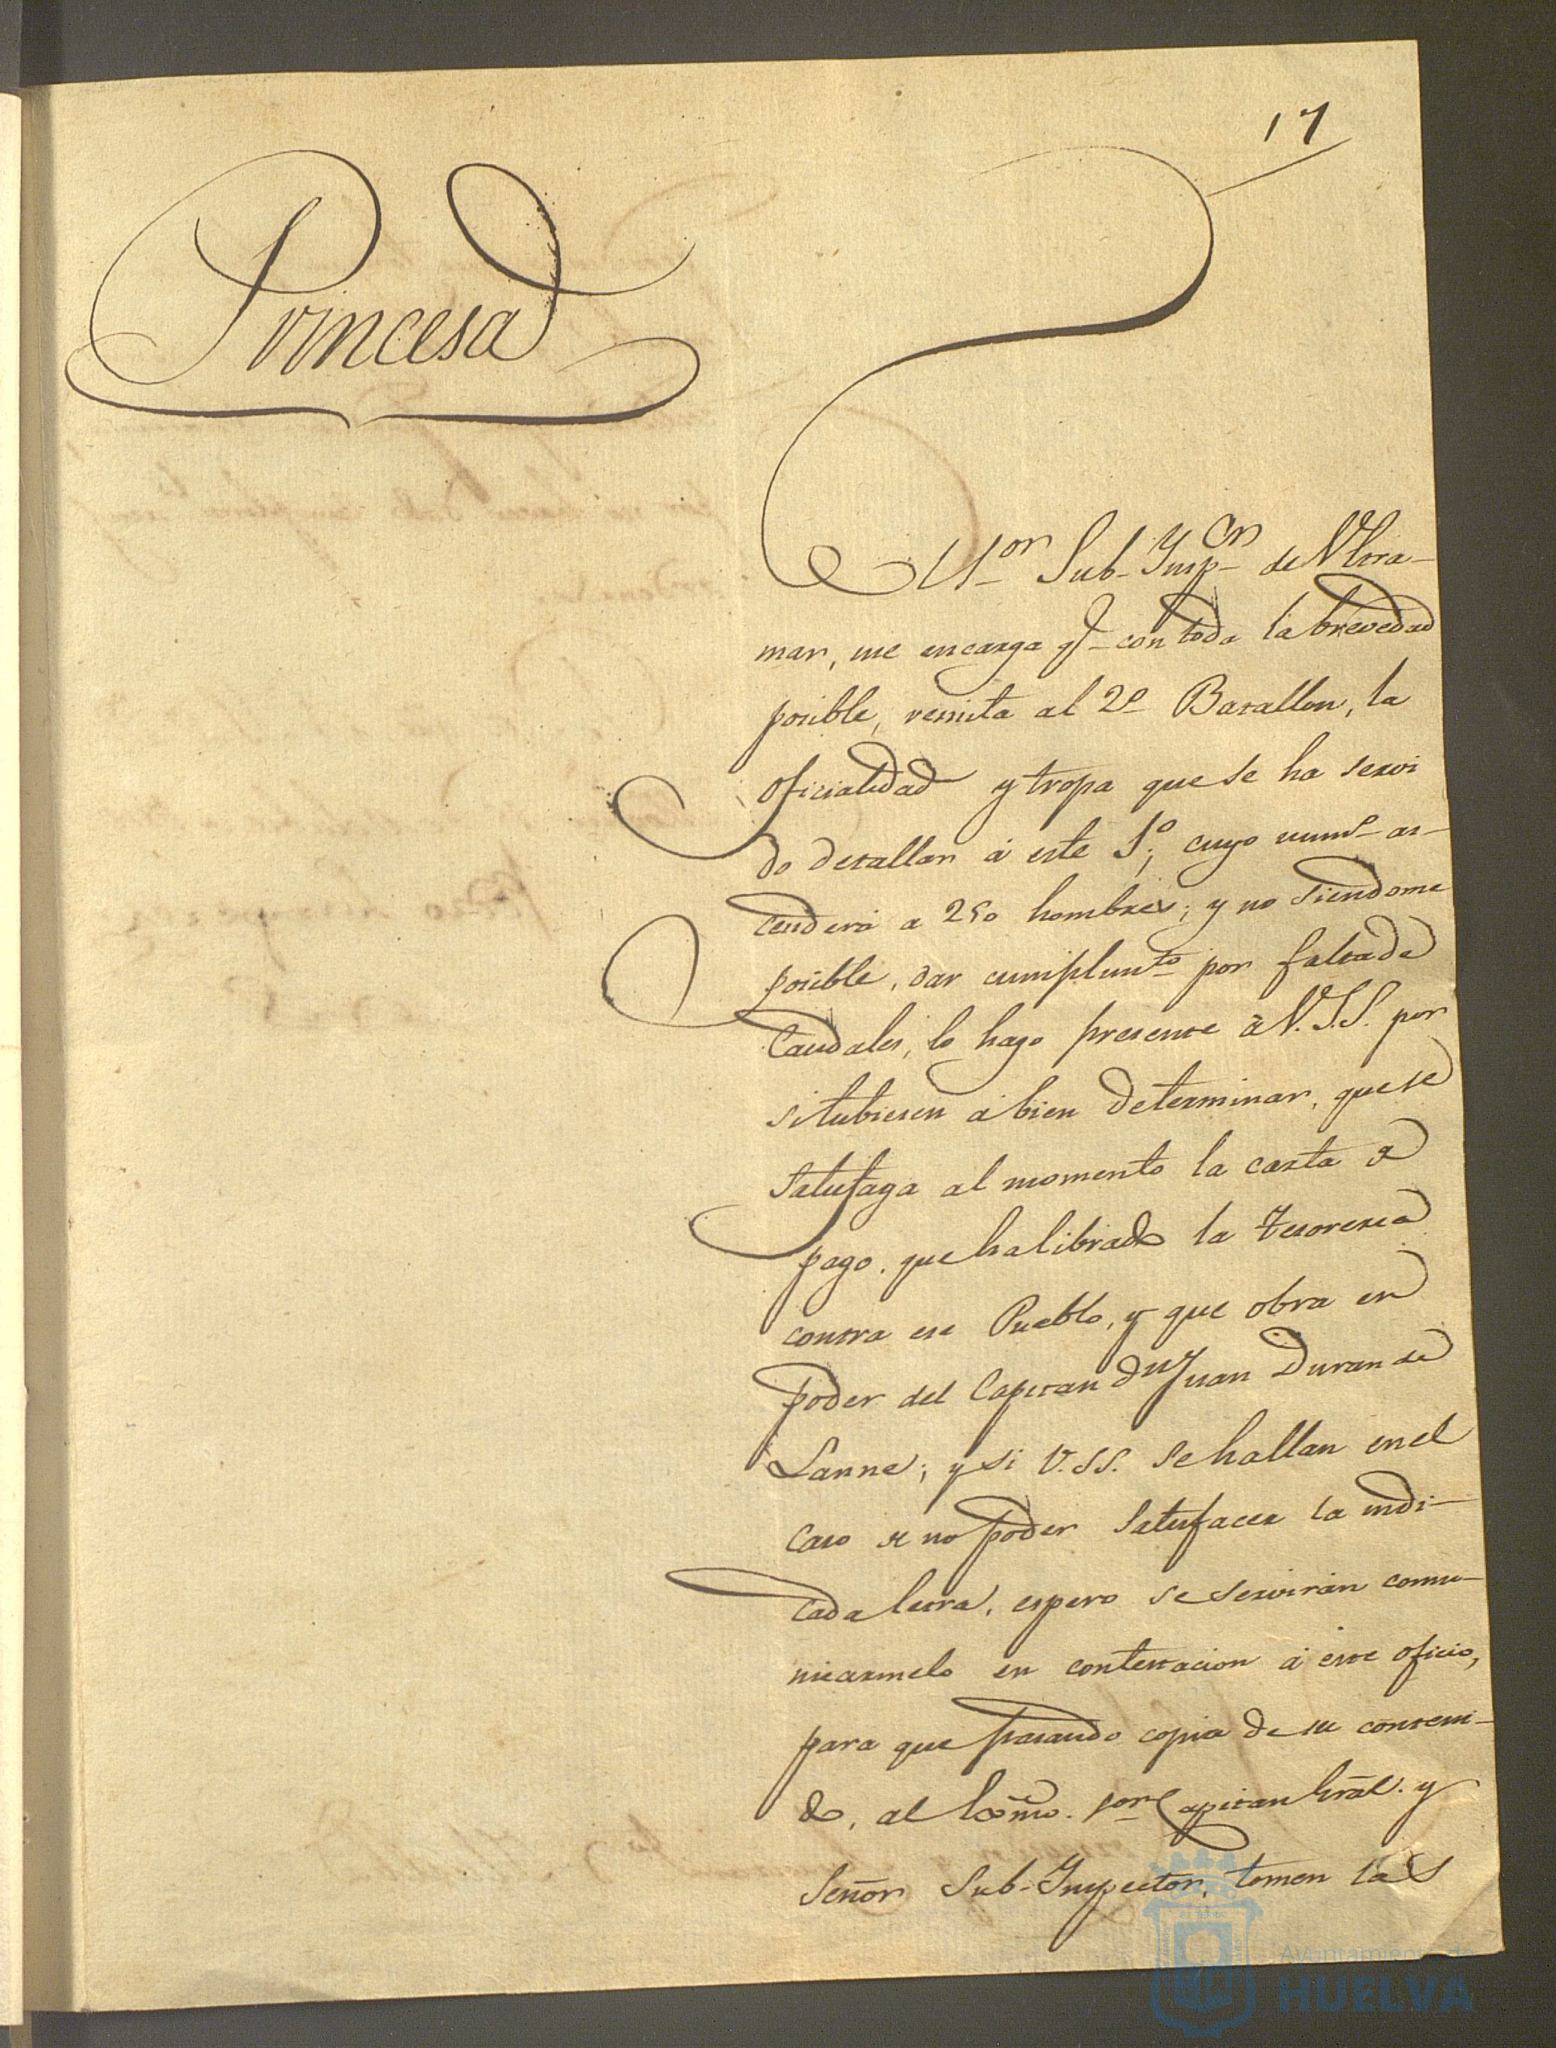 17
Princesa
El S.or Sub-Ynsp.or de Ultra-
mar, me encarga q.e con toda la brevedad
posible, remita al 2.o Batallon, la
oficialidad y tropa que se ha servi
do detallar á este 1.o; cuyo num.o as-
cenderá a 250 hombres; y no siendome
posible, dar cumplim.to por falta de
Caudales, lo hago presente á V.S.S. por
si tubiesen á bien determinar, que se
satisfaga al momento la carta de
pago que ha librado la tesoreria
contra ese Pueblo, y que obra en
poder del Capitan D.n Juan Duran de
Lanne; y si V.SS. se hallan en el
caso de no poder satisfacer la indi-
cada letra, espero se servirán comu-
nicarmelo en contestacion á este oficio,
para que pasando copia de su conteni-
do, al Exmo. S.or Capitan Grãl. y
Señor Sub-Ynspector, tomen las
Ayuntamiento de
HUELVA